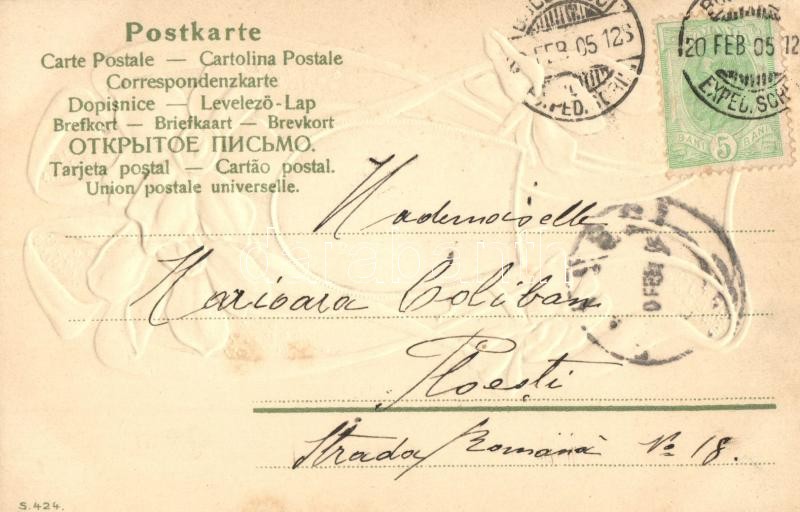 Postkarte
Carte Postale — Cartolina Postale
Correspondenzkarte
Dopisnice — Levelezö-Lap
Brefkort — Briefkaart — Brevkort
ОТКРЫТОЕ ПИСЬМО.
Tarjeta postal — Cartão postal.
Union postale universelle.
20 FEB 05 12
EXPED. SCRI
FEB 05 12S
BANI 5 BANI
Mademoiselle
Marioara Coliban
Ploești
Strada Română No 18.
FEB
darabanth
S. 424.